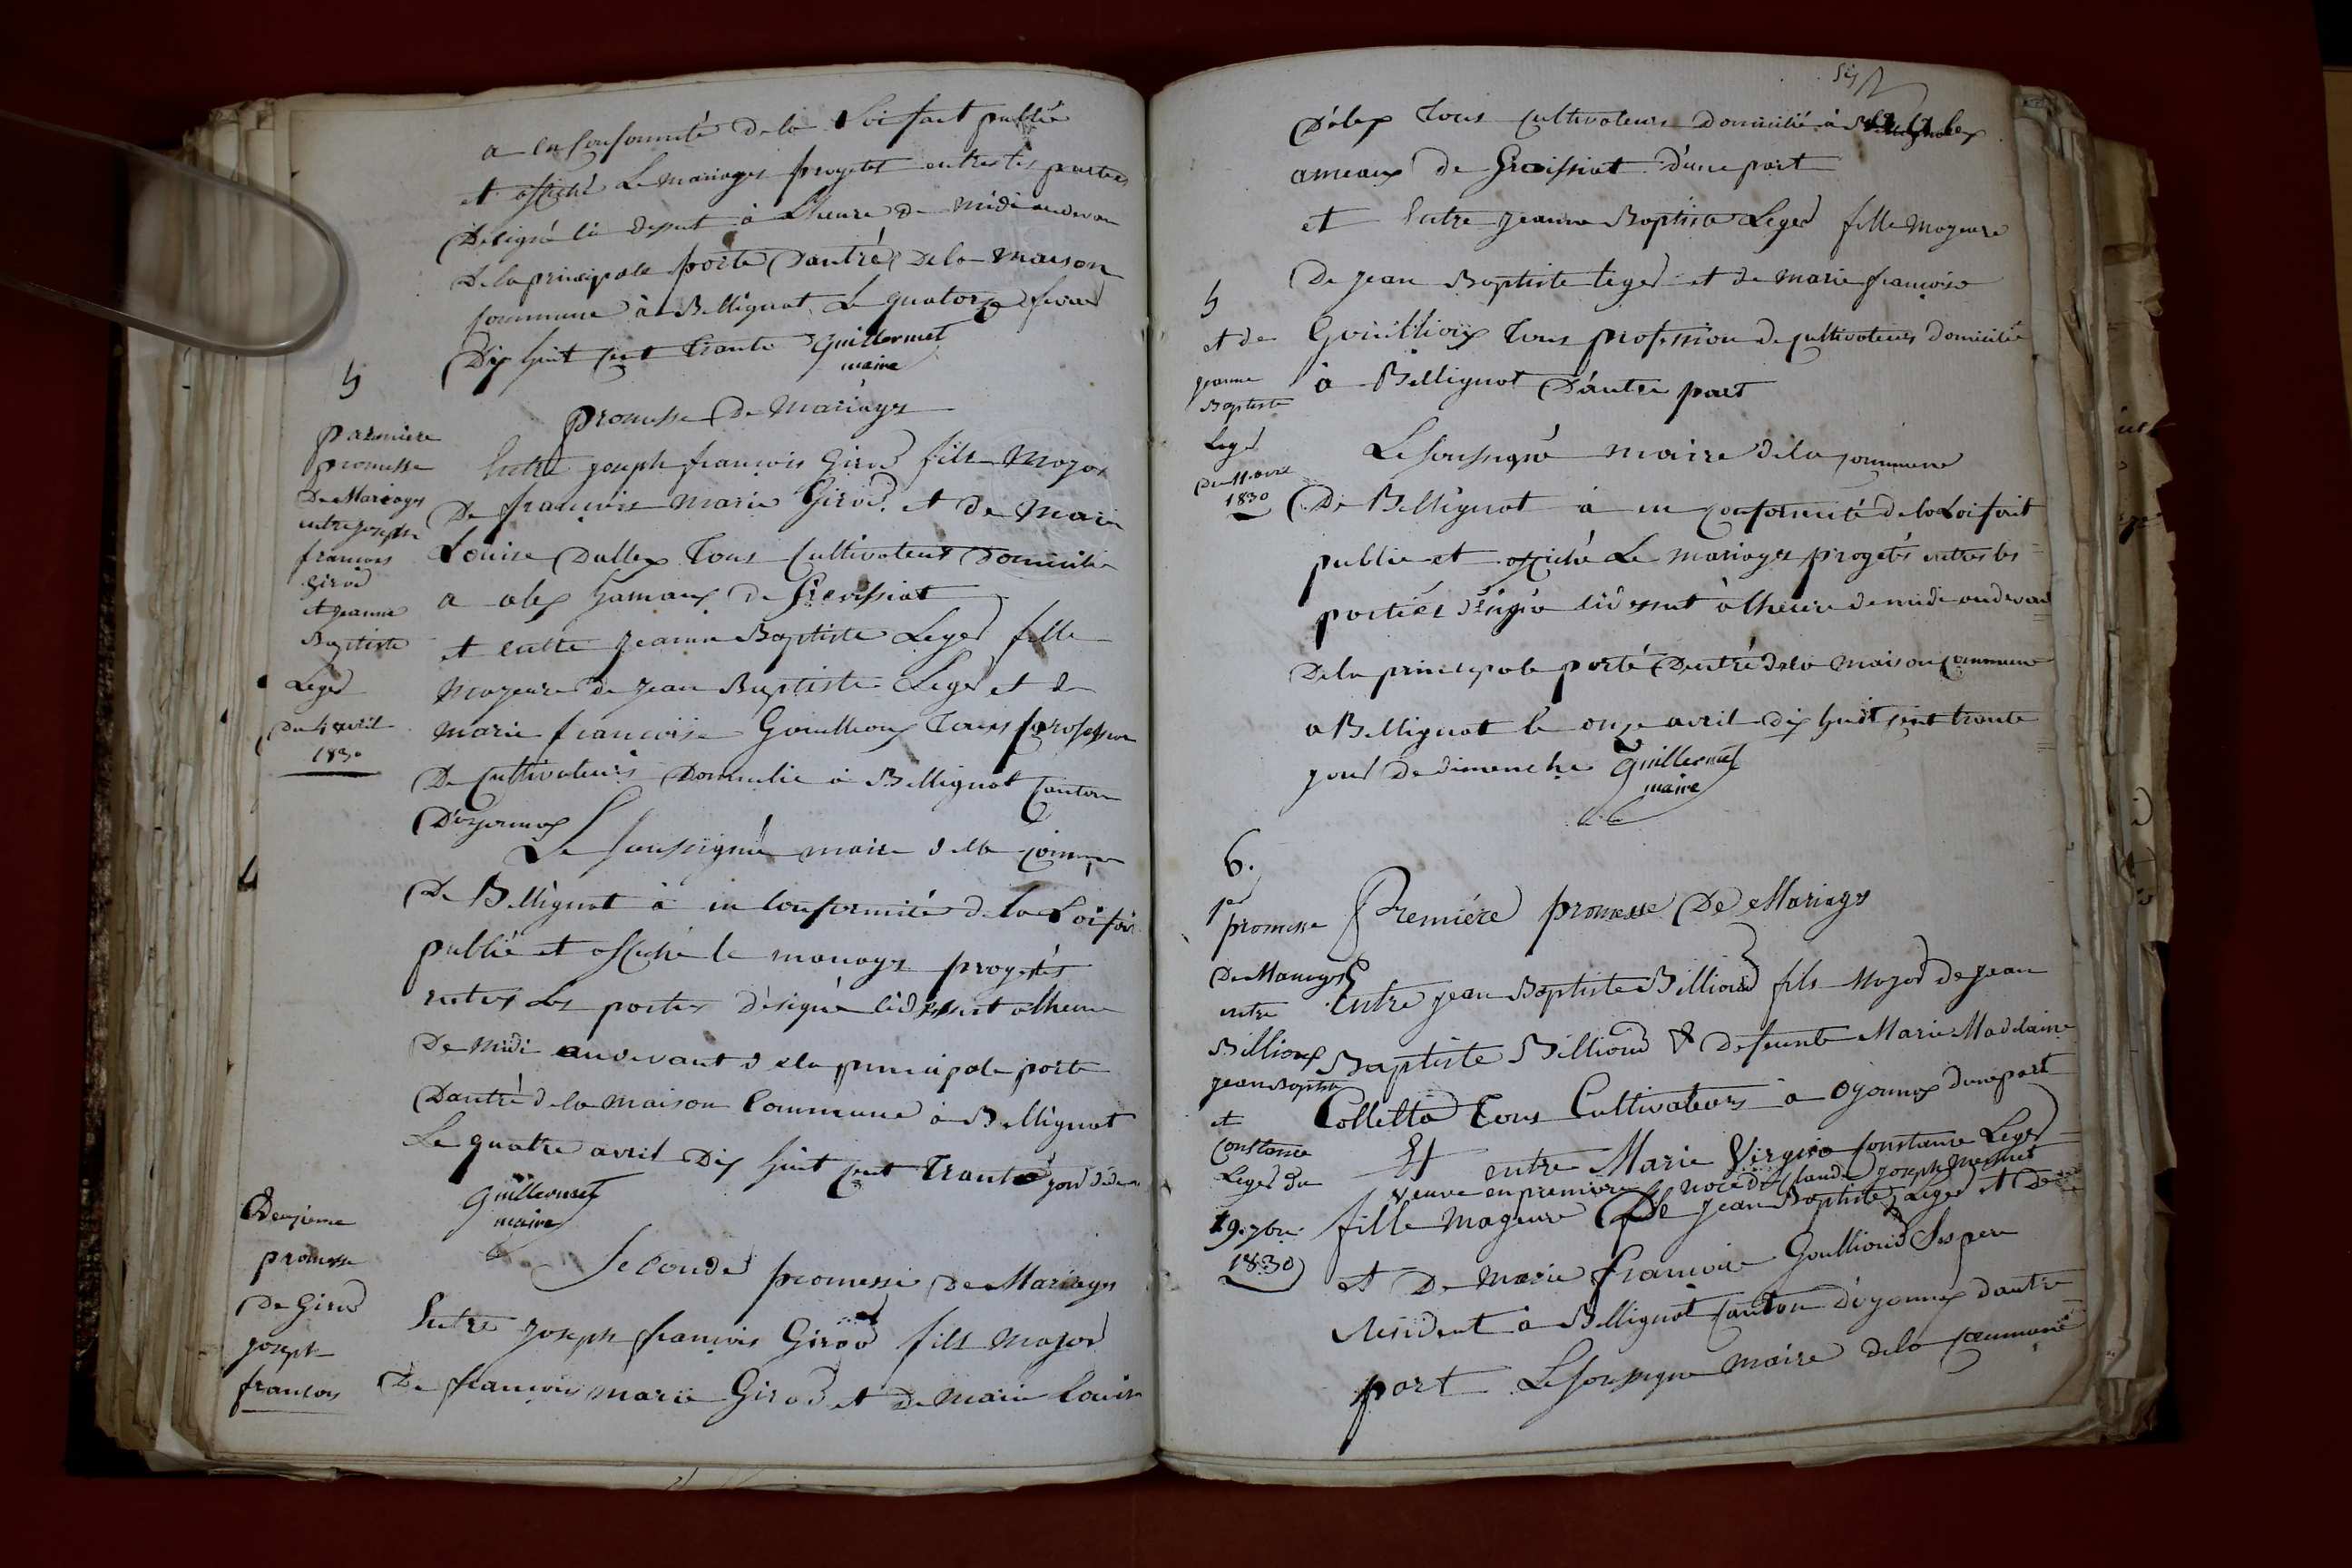 a en Conformité dela Loi fait publié
et affiché Le mariages progetés entres les parties
Désigné ci dessut à L'heure de midi audevan
De la principale porte Dantré dela maison
Commune à Bellignat Le quatorze fevrier
Dix huit cent trante Guillermet
maire
5
paremiere
promesse
De Mariages
entre joseph
francois
girod
et jeanne
Baptiste
Leger
Du 4 avril
1830
promesse De Mariages
Entre joseph francois Girod fils Major
De francois marie Girod et de Marie
Louise Dallex Tous Cultivateurs Domicilié
a alex hamaux de Groissiat
et entre jeanne Baptiste Leger fille
Mageure de jean Baptiste Leger et de
marie francoise Gouillioux Tous profession
De Cultivateurs Domicilié à Bellignat Canton
D'oyonnax
Le soussigné maire dela Commune
De Bellignat à en Conformité dela Loi fait
publié et affiché le mariages progetés
entres Les parties désigné cidessut alheure
De midi audevant dela principale porte
Dantré dela maison Commune à Bellignat
Le quatre avril Dix huit cent Trante jour dedim
Guillermet
maire
Deuxieme
promesse
De Girod
joseph
francois
Seconde promesse De Mariages
Entre joseph francois Girod fils Major
De francois marie Girod et de Marie Louise
D'alex Tous Cultivateurs Domicilié à alex
ameaux de Groissiat d'une part
et Entre jeanne Baptiste Leger fille Mageure
De jean Baptiste leger et de marie francoise
Gouillioux Tous profession de cultivateurs domicilié
à Bellignat D'autre part
5
et de
jeanne
Baptiste
Leger
Du 11 avril
1830
Le soussigné maire dela Commune
De Bellignat à en conformité dela Loi fait
publié et affiché Le mariages progetés entres les
partiés désigné cidessut à lheure de midi audevan
Dela principale porté Dentré dela maison Commune
a Bellignat le onze avril dix huit cent trante
jour de dimenche Guillermet
maire
6.
1er
promesse
De Mariages
entre
Billioux
jean Baptiste
et
Constance
Leger Du
19. 7bre
1830
Premiére promesse De Mariages
Entre jean Baptiste Billioud fils Major de jean
Baptiste Billioud & defeunte Marie Madelaine
Colletta Tous Cultivateurs à Oyonnax dune part
Et entre Marie Virginie Constance Leger
veuve en premiere noce de Claude joseph Mermet
fille mageure De jean Baptiste Leger et De
et De Marie francoise Goullioud Ses pere
résident à Bellignat Canton d'oyonnax dautre
part Le soussigne maire dela Commune